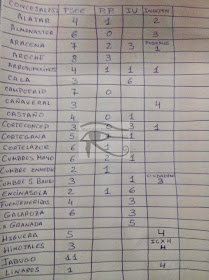 CONCEJALES PSOE P.P. IU INDEPEN
ALAJAR 4 1 2
ALMONASTER 6 0 3
ARACENA 7 2 3 1
AROCHE 8 3
4 1 1 1
CALA 3 6
CAMPOFRIO 7 0
CAÑAVERAL 3 4
CASTAÑO 4 0 1
CORTECONCEP 3 3 1
CORTEGANA 5 1
CORTELAZOR 6 1
CUMBRES MAYO 6 2 1
CUMBRE ENMEDIO 2 1
CUMBRE S. BARTO 3 1 3
ENCINASOLA 2 1 6
FUENTEHERIDOS 4 3
GALAROZA 6 3
LA GRANADA 5
HIGUERA 5 4
HINOJALES 3 4
JABUGO 11
LINARES 1 4